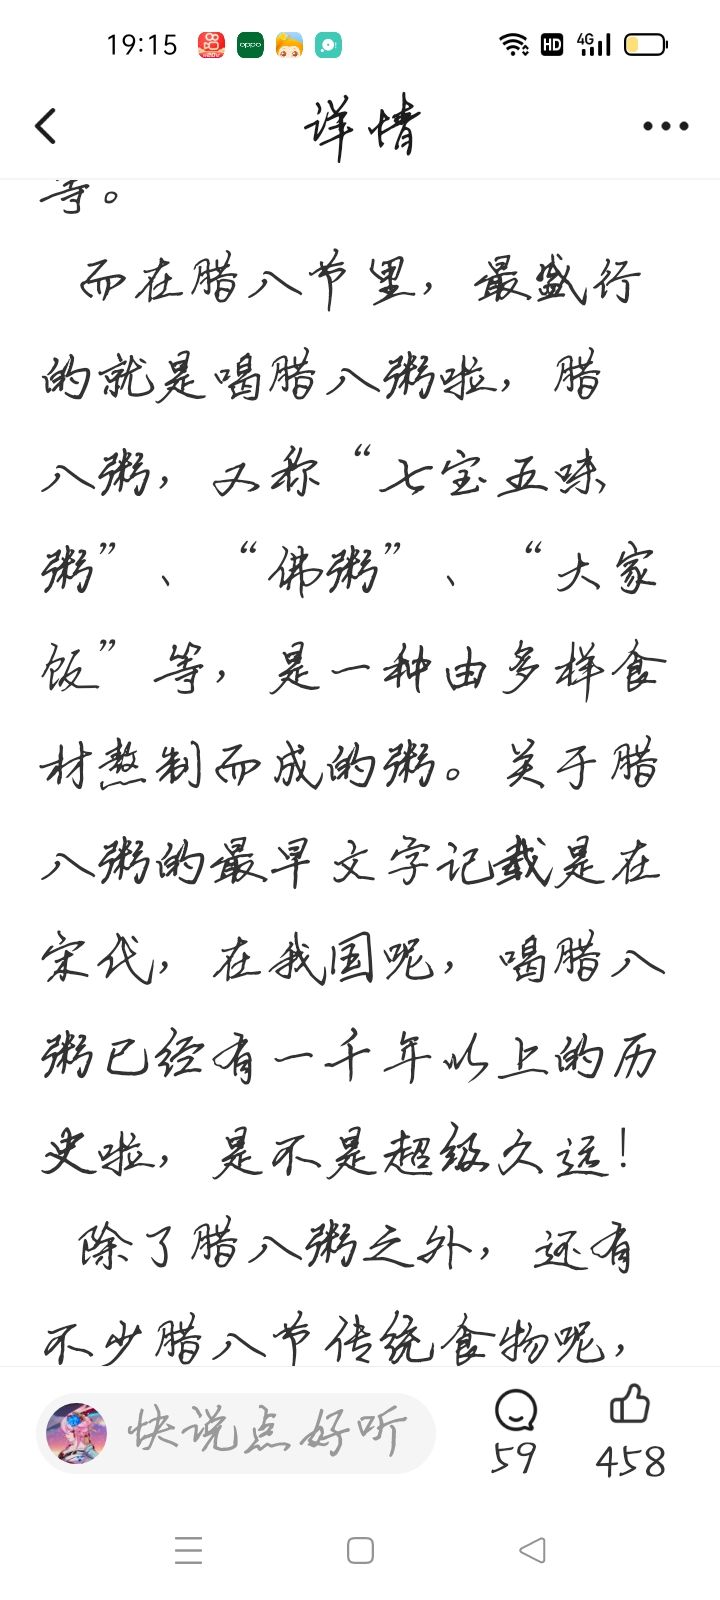 19:15 HD 4G
详情
等。
而在腊八节里，最盛行
的就是喝腊八粥啦，腊
八粥，又称“七宝五味
粥”、“佛粥”、“大家
饭”等，是一种由多样食
材熬制而成的粥。关于腊
八粥的最早文字记载是在
宋代，在我国呢，喝腊八
粥已经有一千年以上的历
史啦，是不是超级久远！
除了腊八粥之外，还有
不少腊八节传统食物呢，
快说点好听
59
458